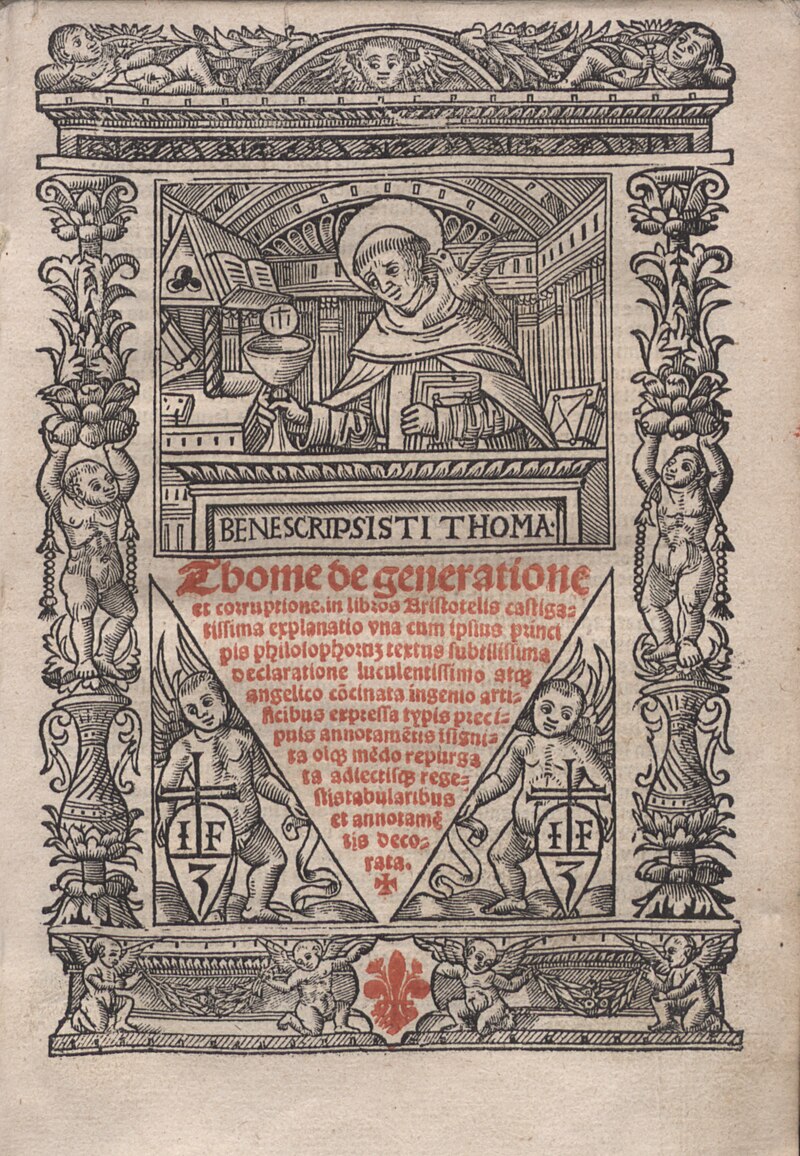 BENESCRIPSISTI THOMA·
Thome de generatione
et corruptione. in libros Aristotelis castiga⸗
tissima explanatio vna cum ipsius princi
pis philosophorum textus subtilissima
declaratione luculentissimo atq⁊
angelico cōcinata ingenio arti⸗
ficibus expressa typis preci⸗
puis annotamētis īsigni⸗
ta olq⁊ mēdo repurga
ta adiectisq⁊ rege⸗
stis tabularibus
et annotamē
tis deco⸗
rata.
✠
I F
3
I F
3